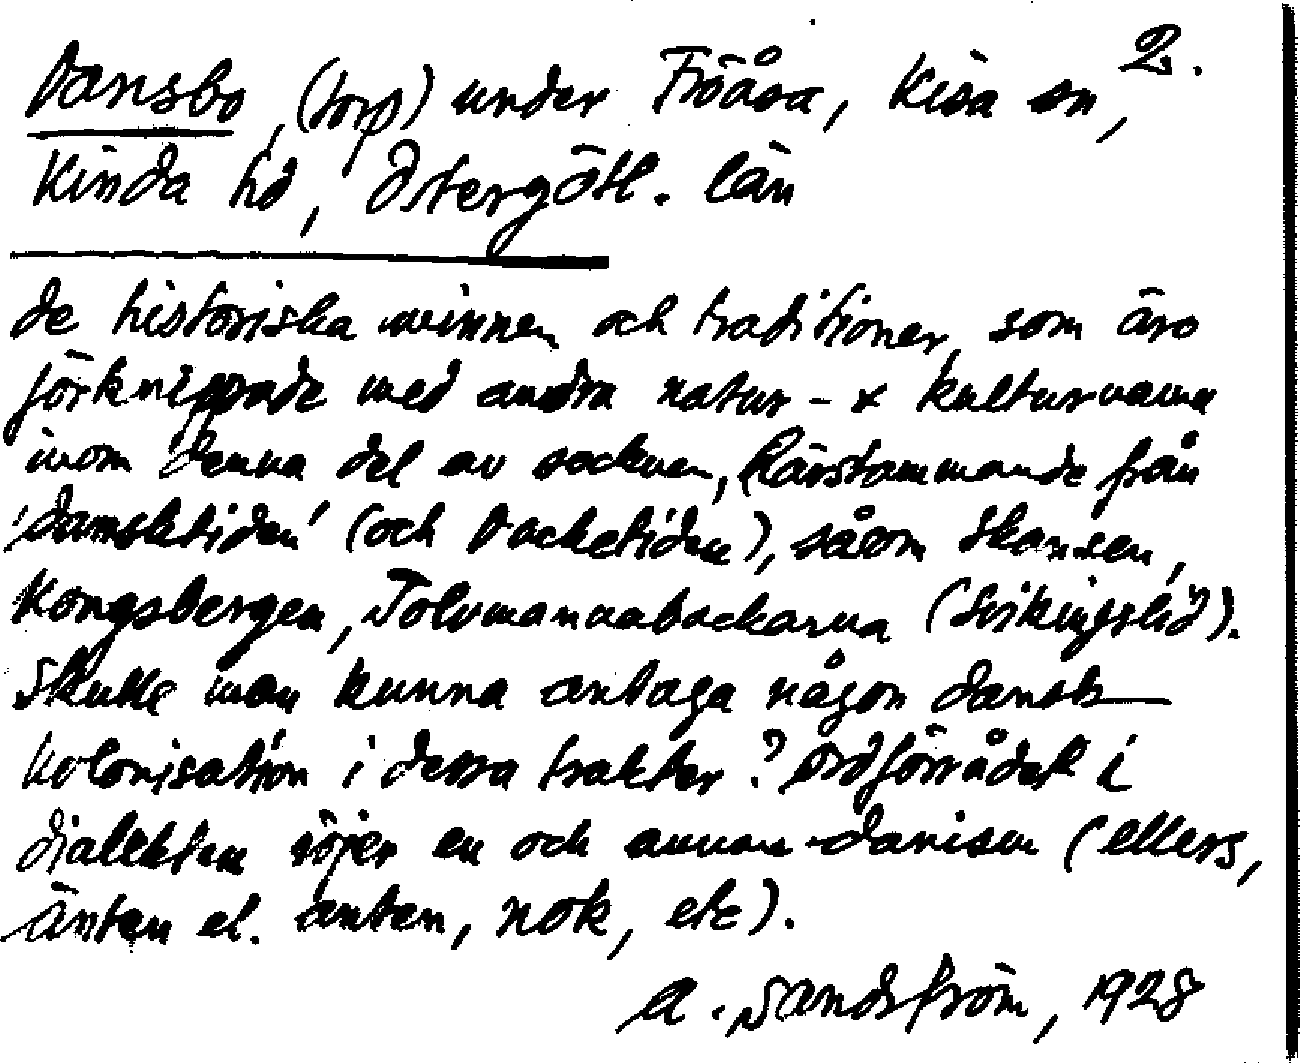 2.
Dansbo, (torp) under Fröåsa, Kisa sn,
Kinda hd, Östergötl. län
de historiska minnen och traditioner, som äro
förknippade med andra natur- & kulturnamn
inom denna del av socknen, härstammande från
'dansktiden' (och Dacketiden), såsom Skansen,
Kongsbergen, Tolvmannabackarna (Svikingslid).
Skulle man kunna antaga någon dansk
kolonisation i dessa trakter? Ordförrådet i
dialekten röjer en och annan danism (ellers,
änten el. anten, nok, etc).
A. Sandström, 1928